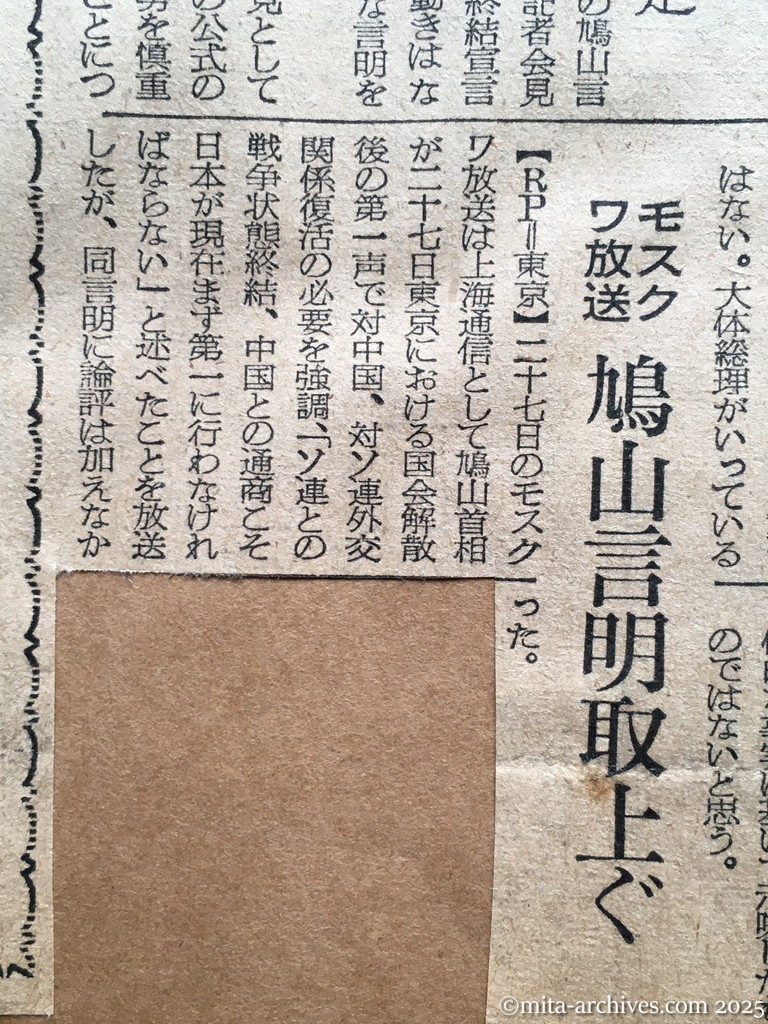 はない。大体総理がいっている
のではないと思う。
モスク
ワ放送
鳩山言明取上ぐ
【RP=東京】二十七日のモスク
ワ放送は上海通信として鳩山首相
が二十七日東京における国会解散
後の第一声で対中国、対ソ連外交
関係復活の必要を強調、「ソ連との
戦争状態終結、中国との通商こそ
日本が現在まず第一に行わなけれ
ばならない」と述べたことを放送
したが、同言明に論評は加えなか
った。
の鳩山言
記者会見
終結宣言
動きはな
な言明を
見として
の公式の
を慎重
ことにつ
©mita-archives.com 2025